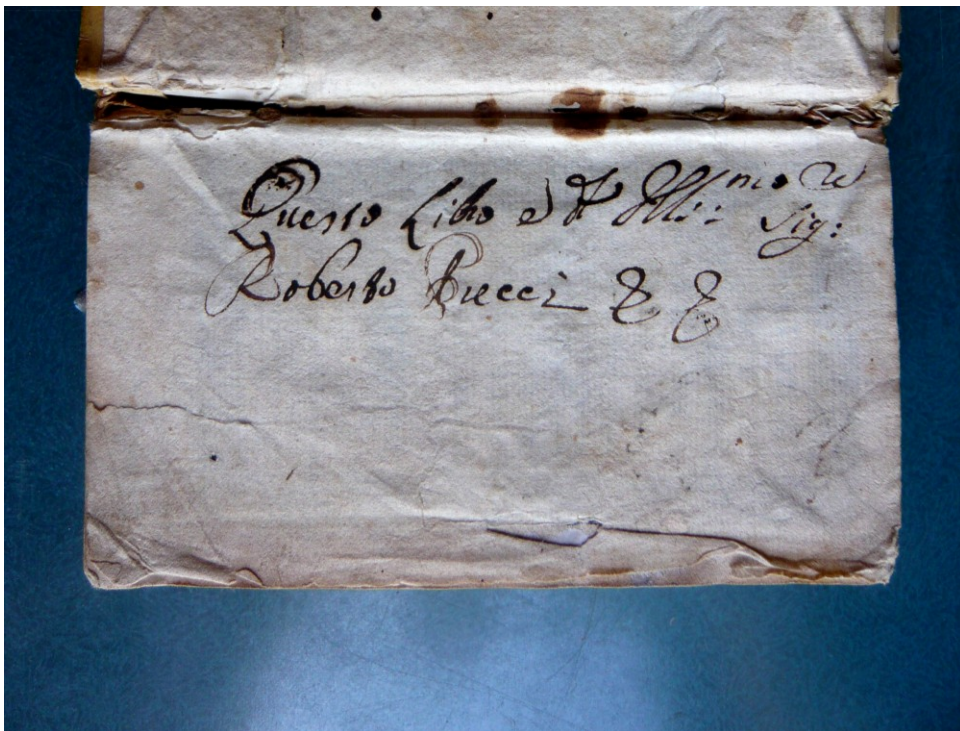 Questo Libro è d Ill:mo Sig:
Roberto Pucci & &